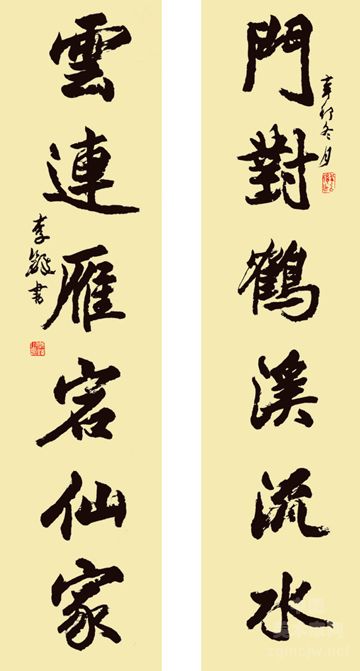 門對鶴溪流水
辛卯冬月
雲連雁宕仙家
李書